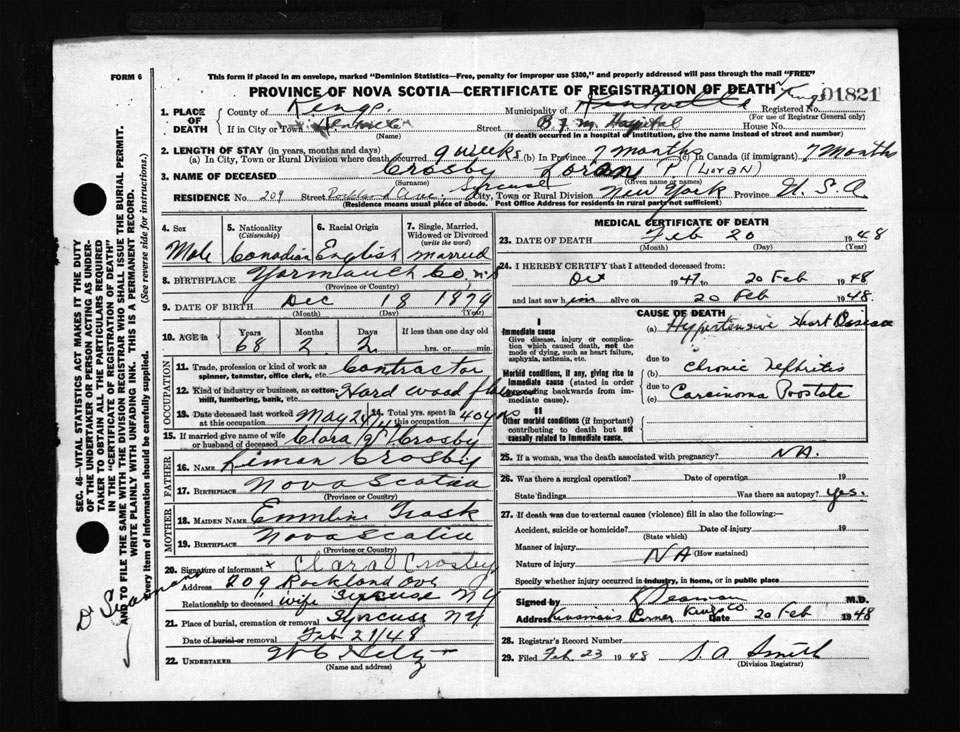 FORM 6
This form if placed in an envelope, marked "Dominion Statistics—Free, penalty for improper use $300," and properly addressed will pass through the mail "FREE"
PROVINCE OF NOVA SCOTIA—CERTIFICATE OF REGISTRATION OF DEATH
01821
1. PLACE OF DEATH County of Kings. Municipality of Kentville Registered No.
(For use of Registrar General only)
If in City or Town Kentville Street B.F.M. Hospital House No.
(Name) (If death occurred in a hospital or institution, give the name instead of street and number)
2. LENGTH OF STAY (in years, months and days)
(a) In City, Town or Rural Division where death occurred 9 weeks (b) In Province 7 months (c) In Canada (if immigrant) 7 months
3. NAME OF DECEASED Crosby Loran P. (Loran)
(Surname) (Given name or names)
RESIDENCE No. 209 Street Rockland Ave. Syracuse City, Town or Rural Division New York Province U.S.A
(Residence means usual place of abode. Post Office Address for residents in rural parts not sufficient)
4. Sex
Male
5. Nationality
(Citizenship)
Canadian
6. Racial Origin
English
7. Single, Married, Widowed or Divorced
(write the word)
married
8. BIRTHPLACE Yarmouth Co, N.S
(Province or Country)
9. DATE OF BIRTH Dec 18 1879
(Month) (Day) (Year)
10. AGE in Years Months Days If less than one day old
68 2 2 hrs. or min.
OCCUPATION
11. Trade, profession or kind of work as spinner, teamster, office clerk, etc. Contractor
12. Kind of industry or business, as cotton-mill, lumbering, bank, etc. Hard wood floors
13. Date deceased last worked at this occupation May 20/47 14. Total yrs. spent in this occupation 40 yrs
15. If married give name of wife or husband of deceased Clara Crosby
FATHER
16. NAME Liman Crosby
17. BIRTHPLACE Nova Scotia
(Province or Country)
MOTHER
18. MAIDEN NAME Emmline Trask
19. BIRTHPLACE Nova Scotia
(Province or Country)
20. Signature of informant x Clara Crosby
Address 209 Rockland Ave
Relationship to deceased wife Syracuse NY
21. Place of burial, cremation or removal Syracuse NY
Date of burial or removal Feb 21/48
22. UNDERTAKER
(Name and address)
MEDICAL CERTIFICATE OF DEATH
23. DATE OF DEATH Feb 20 1948
(Month) (Day) (Year)
24. I HEREBY CERTIFY that I attended deceased from:
Oct 1947 to 20 Feb 1948
and last saw him alive on 20 Feb 1948.
CAUSE OF DEATH
I
Immediate cause
Give disease, injury or complication which caused death, not the mode of dying, such as heart failure, asphyxia, asthenia, etc.
(a) Hypertensive Heart Disease
due to
Morbid conditions, if any, giving rise to immediate cause (stated in order proceeding backwards from immediate cause).
(b) Chronic Nefhritis
due to
(c) Carcinoma Prostate
II
Other morbid conditions (if important) contributing to death but not causally related to immediate cause.
25. If a woman, was the death associated with pregnancy? NA.
26. Was there a surgical operation? Date of operation 19
State findings Was there an autopsy? yes.
27. If death was due to external causes (violence) fill in also the following:—
Accident, suicide or homicide? Date of injury 19
(State which)
Manner of injury NA (How sustained)
Nature of injury
Specify whether injury occurred in industry, in home, or in public place
Signed by Seaman M.D.
Address Kinsman's Corner Kings Co. Date 20 Feb 1948
28. Registrar's Record Number
29. Filed Feb. 23 1948 S. A. Smith
(Division Registrar)
SEC. 46—VITAL STATISTICS ACT MAKES IT THE DUTY
OF THE UNDERTAKER OR PERSON ACTING AS UNDER-
TAKER TO OBTAIN ALL THE PARTICULARS REQUIRED
IN THE "CERTIFICATE OF REGISTRATION OF DEATH"
AND TO FILE THE SAME WITH THE DIVISION REGISTRAR WHO SHALL ISSUE THE BURIAL PERMIT.
WRITE PLAINLY WITH UNFADING INK. THIS IS A PERMANENT RECORD.
Every item of information should be carefully supplied. (See reverse side for instructions.)
Dr Seaman